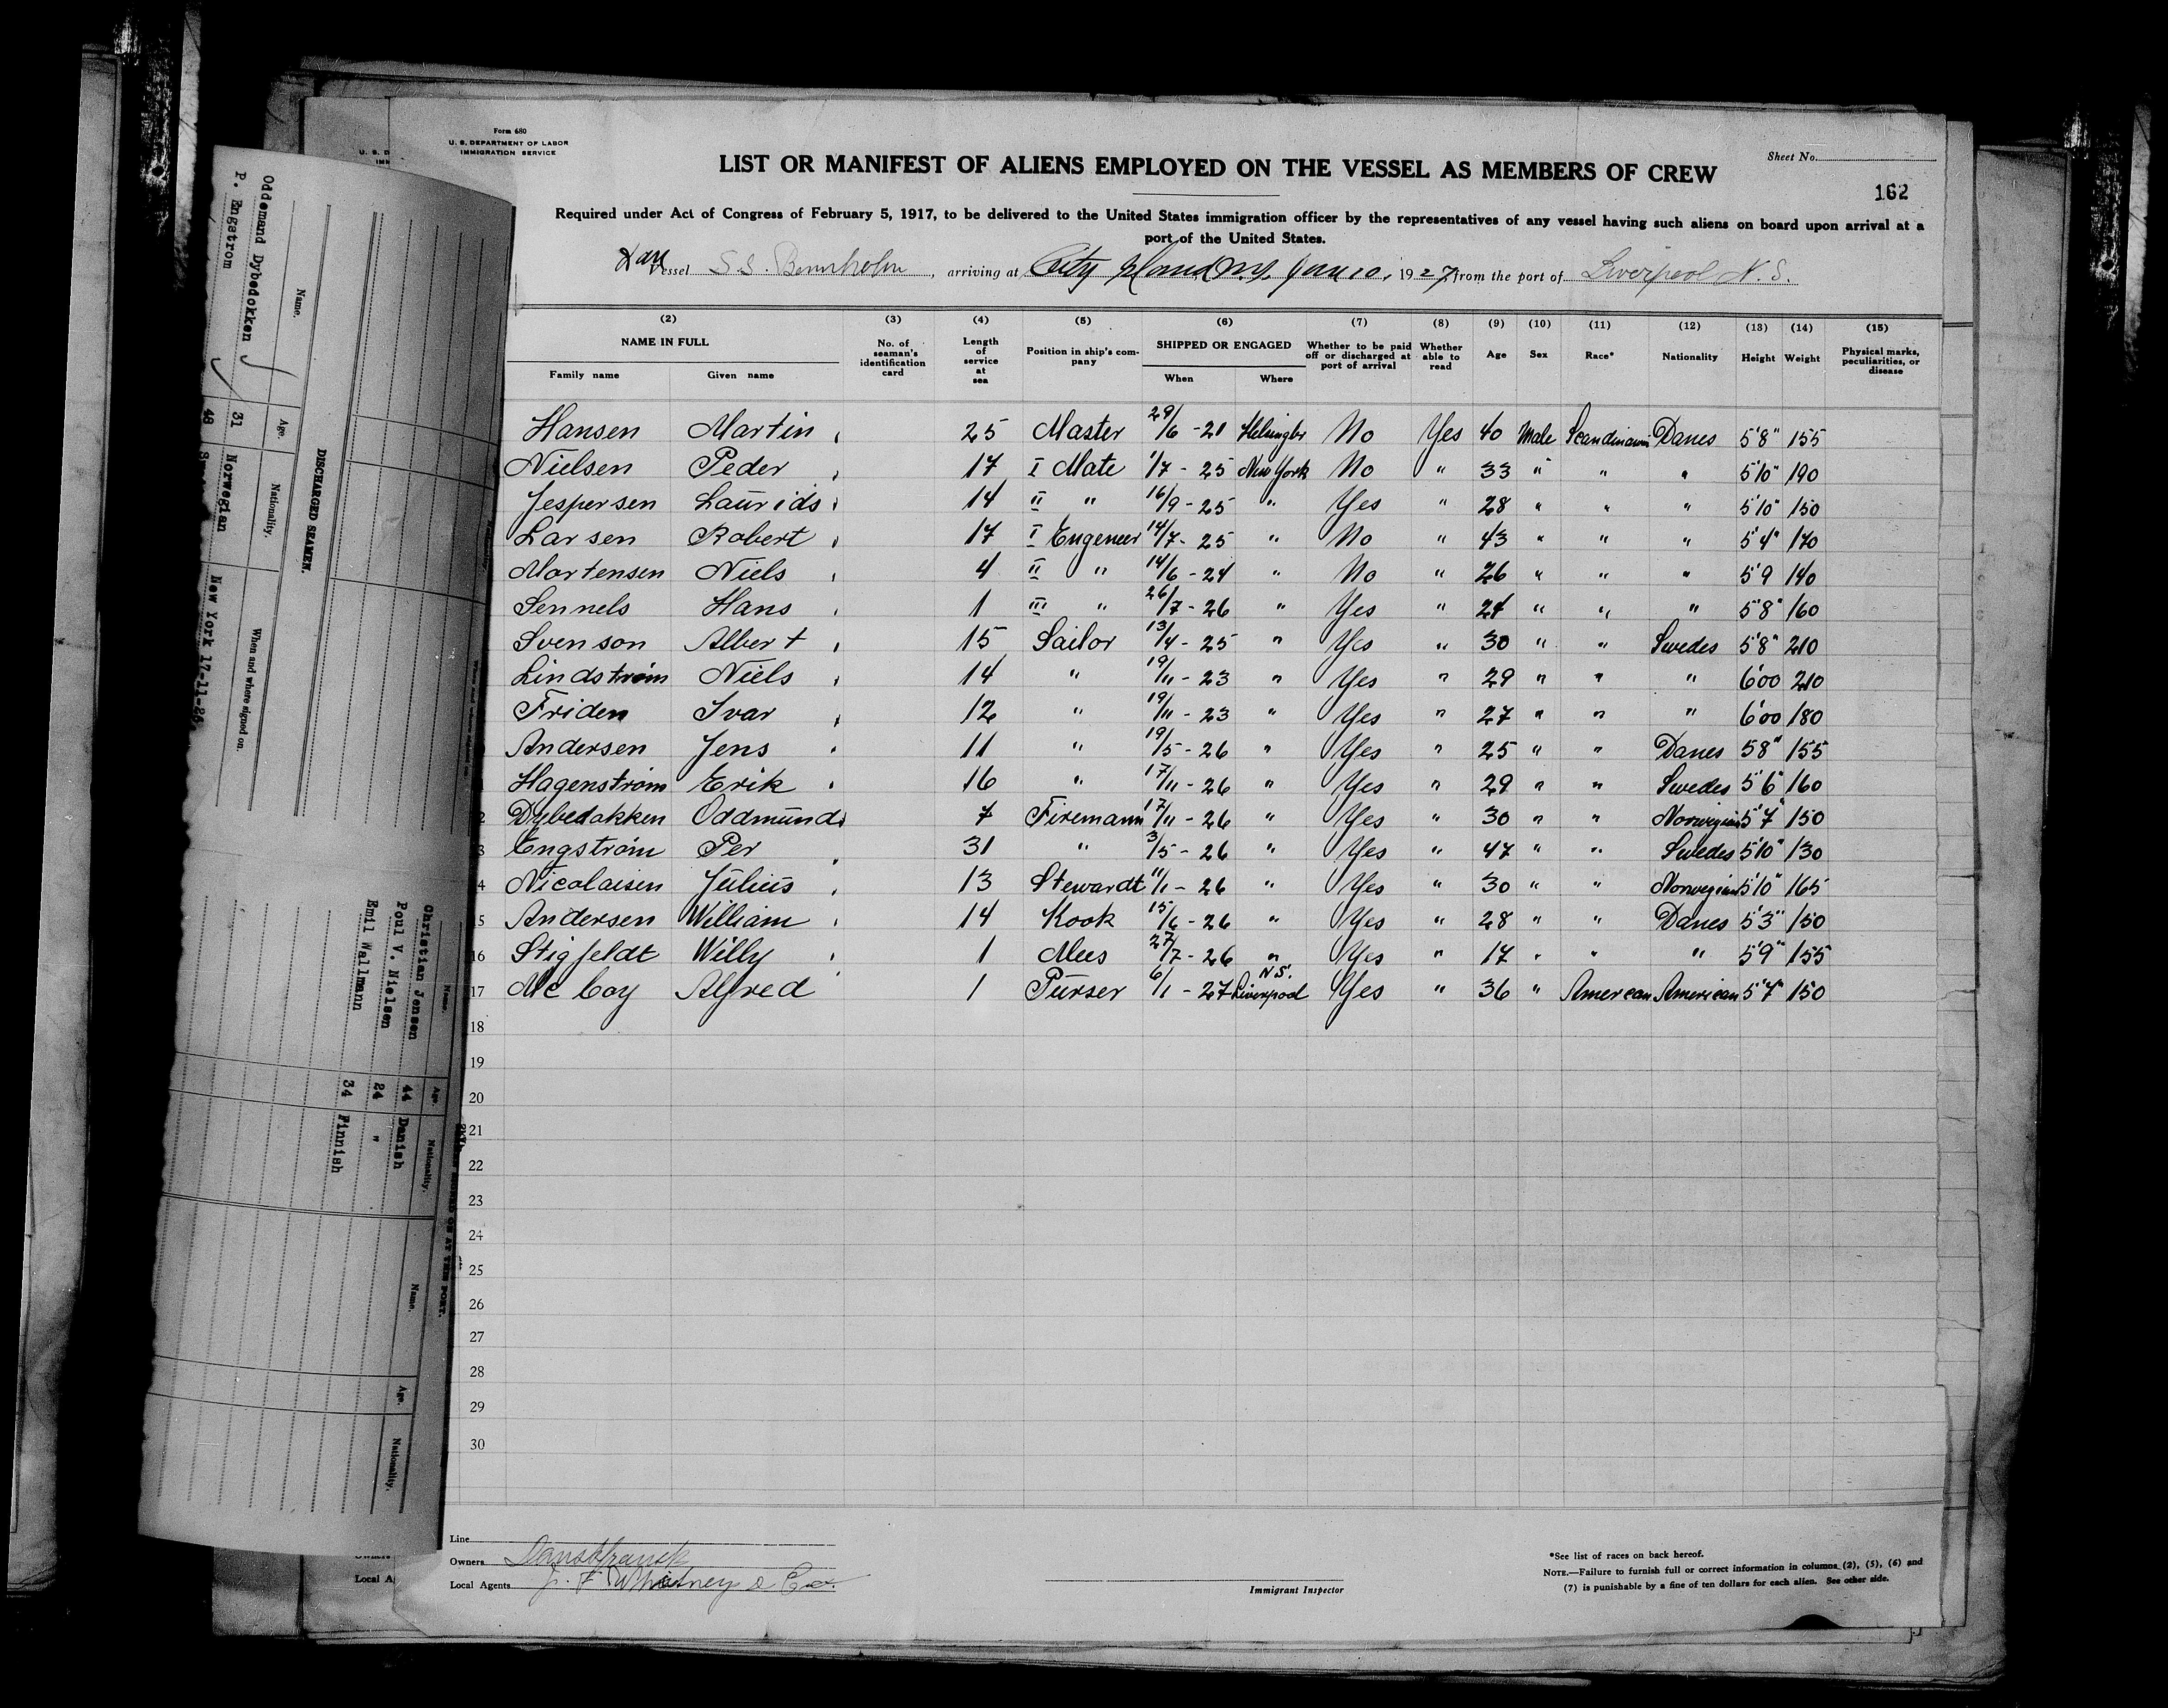 Form 680
U. S. DEPARTMENT OF LABOR
IMMIGRATION SERVICE
Sheet No.
LIST OR MANIFEST OF ALIENS EMPLOYED ON THE VESSEL AS MEMBERS OF CREW
162
Required under Act of Congress of February 5, 1917, to be delivered to the United States immigration officer by the representatives of any vessel having such aliens on board upon arrival at a
port of the United States.
Vessel S.S. Bornholm, arriving at City Island N.Y. Jan 10, 1927, from the port of Liverpool N.S.
(2) (3) (4) (5) (6) (7) (8) (9) (10) (11) (12) (13) (14) (15)
NAME IN FULL No. of seaman's identification card Length of service at sea Position in ship's company SHIPPED OR ENGAGED Whether to be paid off or discharged at port of arrival Whether able to read Age Sex Race* Nationality Height Weight Physical marks, peculiarities, or disease
Family name Given name When Where
Hansen Martin 25 Master 29/6 - 21 Helsingör No Yes 40 Male Scandinavin Danes 5'8" 155
Nielsen Peder 17 I Mate 1/7 - 25 New York No " 33 " " " 5'10" 190
Jespersen Laurids 14 II " 16/9 - 25 " Yes " 28 " " " 5'10" 150
Larsen Robert 17 I Engeneer 14/7 - 25 " No " 43 " " " 5'4" 170
Mortensen Niels 4 II " 14/6 - 24 " No " 26 " " " 5'9 140
Sennels Hans 1 III " 26/7 - 26 " Yes " 24 " " " 5'8" 160
Svenson Albert 15 Sailor 13/4 - 25 " Yes " 30 " " Swedes 5'8" 210
Lindström Niels 14 " 19/11 - 23 " Yes " 29 " " " 6'00 210
Friden Ivar 12 " 19/11 - 23 " Yes " 27 " " " 6'00 180
Andersen Jens 11 " 19/5 - 26 " Yes " 25 " " Danes 58" 155
Hagenström Erik 16 " 17/11 - 26 " Yes " 29 " " Swedes 5'6" 160
Dybedokken Oddmund 7 Firemann 17/11 - 26 " Yes " 30 " " Norwegian 5'7" 150
Engström Per 31 " 3/5 - 26 " Yes " 47 " " Swedes 5'10" 130
Nicolaisen Julius 13 Stewardt 11/1 - 26 " Yes " 30 " " Norwegian 5'10" 165
15 Andersen William 14 Kook 15/6 - 26 " Yes " 28 " " Danes 5'3" 150
16 Stigfeldt Willy 1 Mees 27/7 - 26 " Yes " 17 " " " 5'9" 155
17 Mc Coy Alfred 1 Purser 6/1 - 27 Liverpool N.S. Yes " 36 " American American 5'7" 150
18
19
20
21
22
23
24
25
26
27
28
29
30
Line
Owners Danskfransk
Local Agents J. F. Whitney & Co.
Immigrant Inspector
*See list of races on back hereof.
NOTE.—Failure to furnish full or correct information in columns (2), (5), (6) and
(7) is punishable by a fine of ten dollars for each alien. See other side.
DISCHARGED SEAMEN.
Name. Age. Nationality. When and where signed on.
Oddemand Dybedokken 31 Norwegian New York 17-11-26
P. Engstrom 48
Name. Age. Nationality.
Christian Jensen 44 Danish
Poul V. Nielsen 24 "
Emil Wallmann 34 Finnish
Name. Age. Nationality.